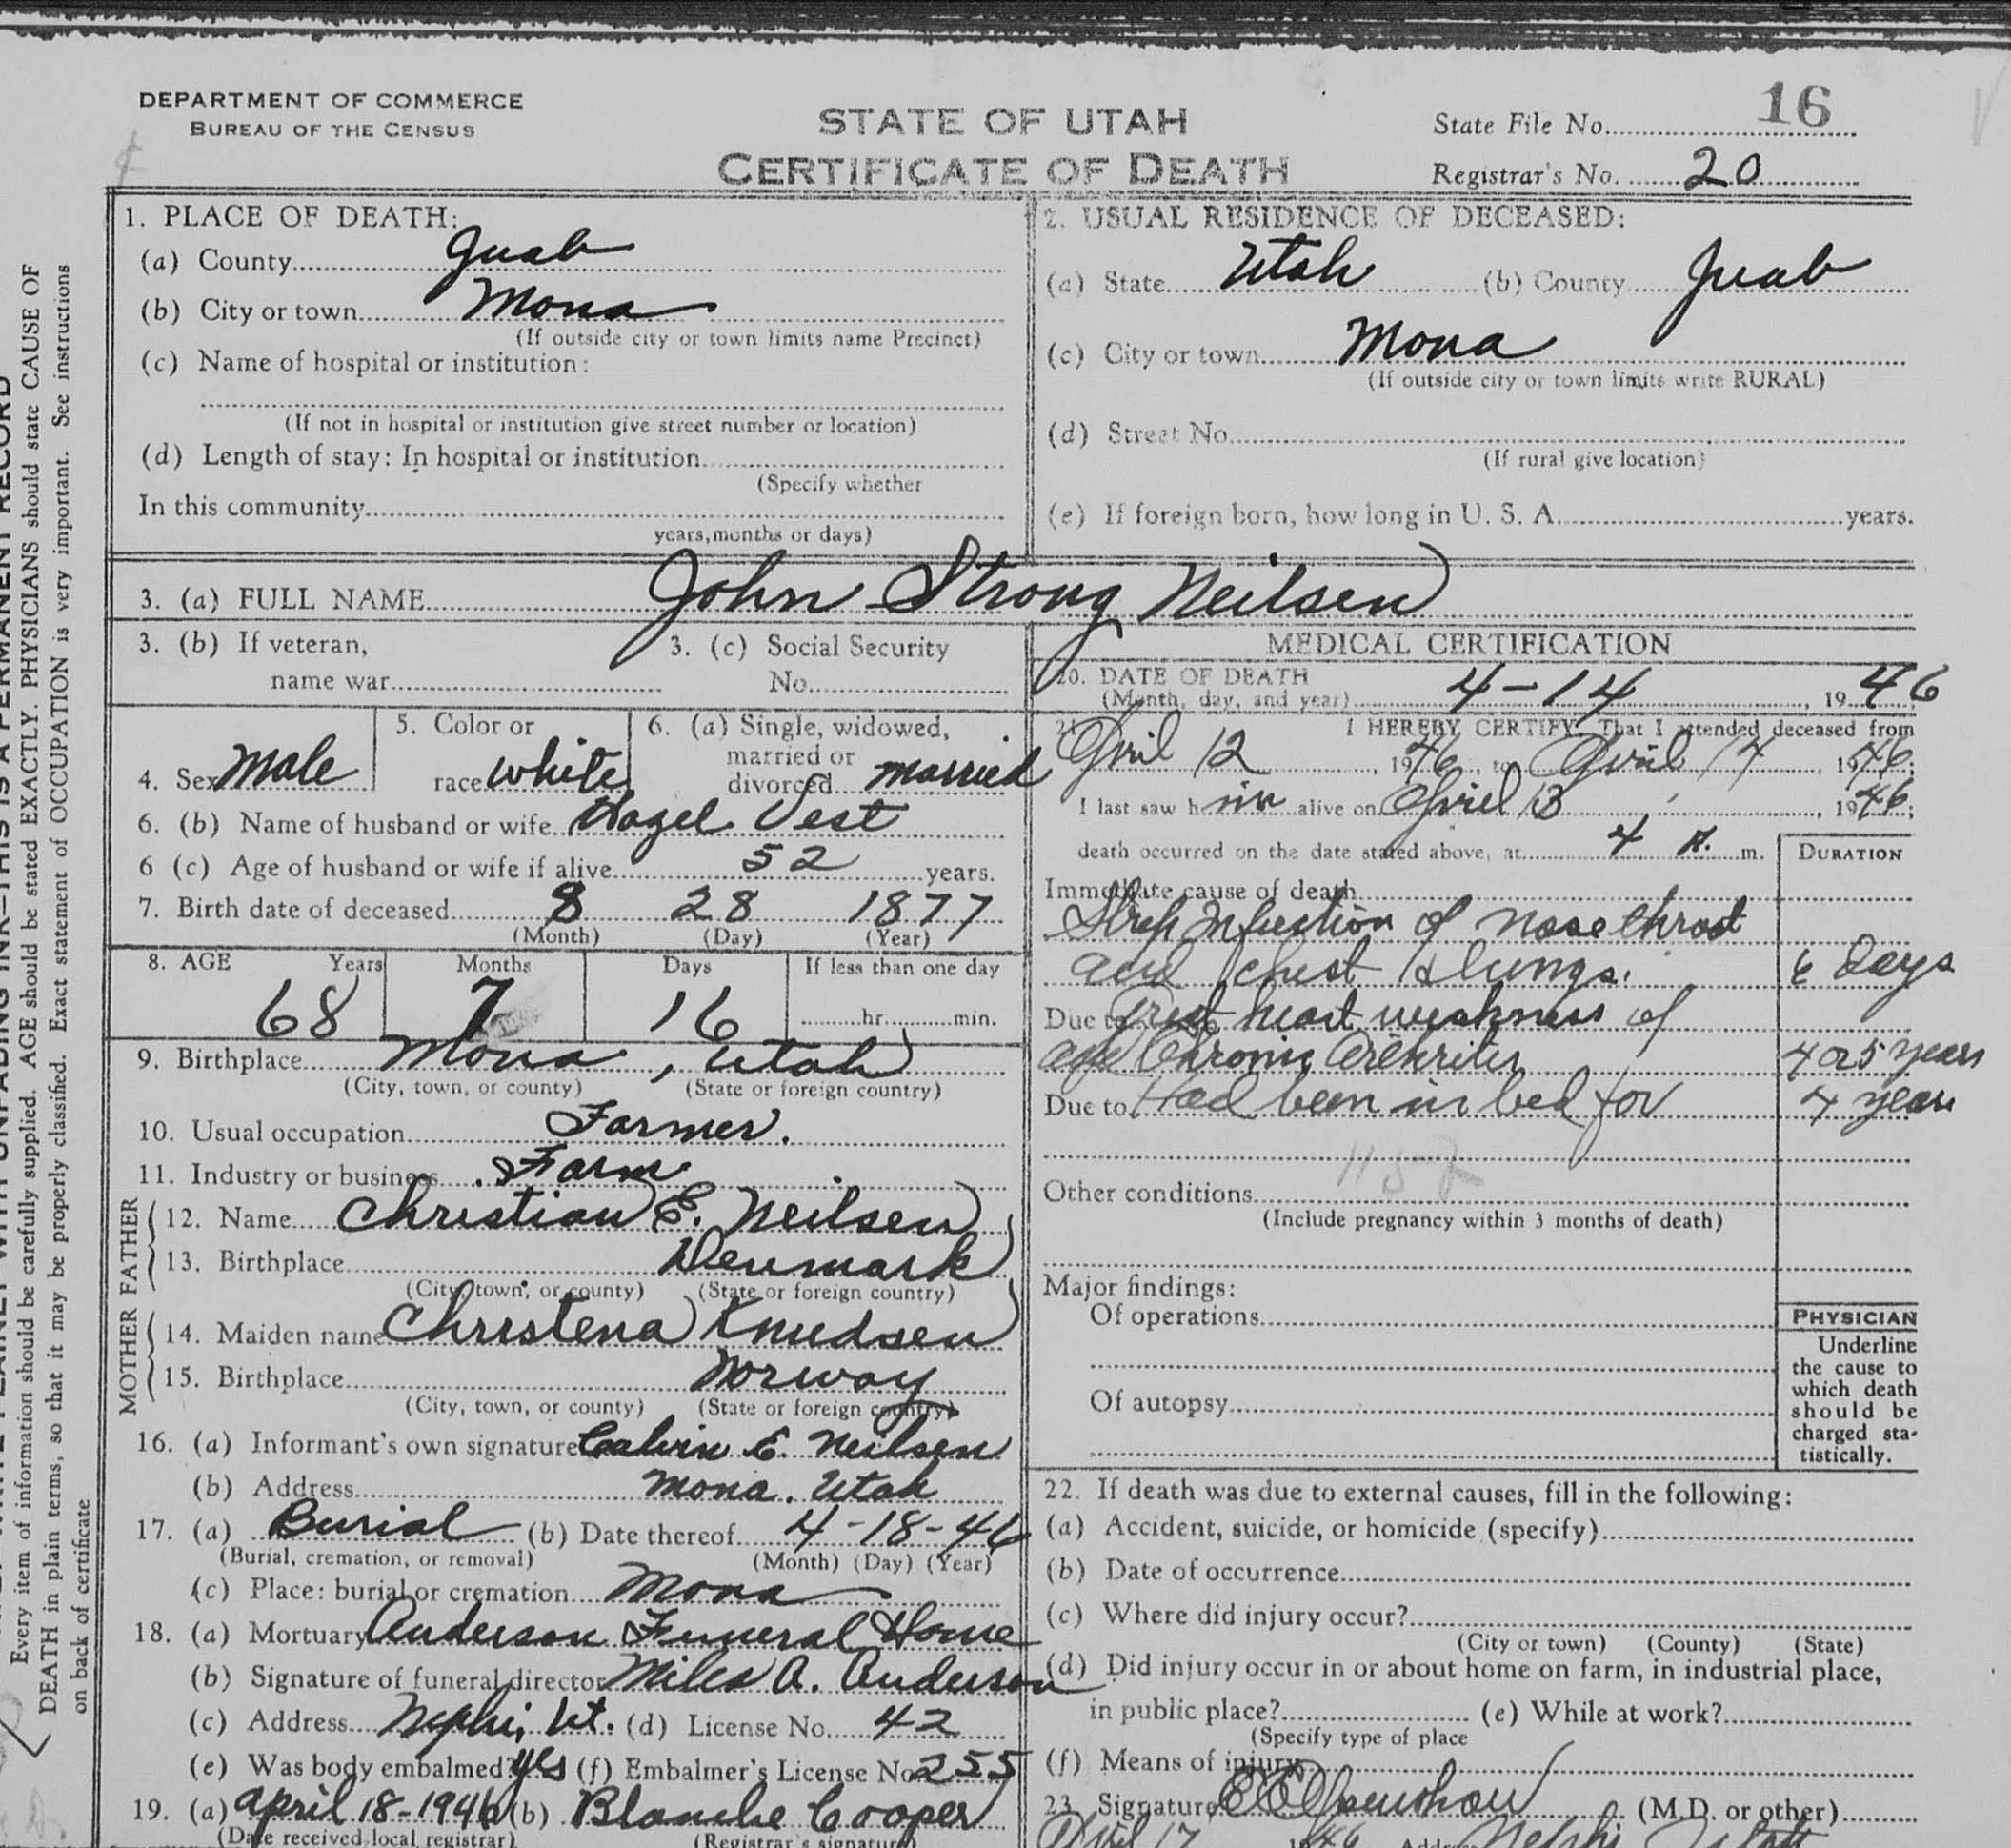 DEPARTMENT OF COMMERCE
BUREAU OF THE CENSUS
STATE OF UTAH
CERTIFICATE OF DEATH
State File No. 16
Registrar's No. 20
1. PLACE OF DEATH:
(a) County Juab
(b) City or town Mona
(If outside city or town limits name Precinct)
(c) Name of hospital or institution:
(If not in hospital or institution give street number or location)
(d) Length of stay: In hospital or institution
(Specify whether
In this community
years, months or days)
2. USUAL RESIDENCE OF DECEASED:
(a) State Utah (b) County Juab
(c) City or town Mona
(If outside city or town limits write RURAL)
(d) Street No.
(If rural give location)
(e) If foreign born, how long in U. S. A. years.
3. (a) FULL NAME John Strong Neilsen
3. (b) If veteran,
name war
3. (c) Social Security
No.
4. Sex Male
5. Color or
race white
6. (a) Single, widowed,
married or
divorced married
6. (b) Name of husband or wife Hazel Vest
6 (c) Age of husband or wife if alive 52 years.
7. Birth date of deceased 8 28 1877
(Month) (Day) (Year)
8. AGE Years Months Days If less than one day
68 7 16 hr. min.
9. Birthplace Mona, Utah
(City, town, or county) (State or foreign country)
10. Usual occupation Farmer.
11. Industry or business Farm
FATHER
12. Name Christian E. Neilsen
13. Birthplace Denmark
(City, town, or county) (State or foreign country)
MOTHER
14. Maiden name Christena Knudsen
15. Birthplace Norway
(City, town, or county) (State or foreign country)
16. (a) Informant's own signature Calvin E. Neilsen
(b) Address Mona, Utah
17. (a) Burial (b) Date thereof 4-18-46
(Burial, cremation, or removal) (Month) (Day) (Year)
(c) Place: burial or cremation Mona
18. (a) Mortuary Anderson Funeral Home
(b) Signature of funeral director Miles A. Anderson
(c) Address Nephi, Ut. (d) License No. 42
(e) Was body embalmed? yes (f) Embalmer's License No 255
19. (a) April 18-1946 (b) Blanche Cooper
(Date received local registrar) (Registrar's signature)
MEDICAL CERTIFICATION
20. DATE OF DEATH
(Month, day, and year) 4-14, 1946
21. I HEREBY CERTIFY: That I attended deceased from
April 12, 1946, to April 14, 1946;
I last saw him alive on April 13, 1946;
death occurred on the date stated above, at 4 A. m.
DURATION
Immediate cause of death
Strep Infection of nose throat
and chest & lungs. 6 Days
Due to heart weakness of
age Chronic Arthritis 4 or 5 years
Due to Had been in bed for 4 years
Other conditions
(Include pregnancy within 3 months of death)
Major findings:
Of operations
Of autopsy
PHYSICIAN
Underline
the cause to
which death
should be
charged sta-
tistically.
22. If death was due to external causes, fill in the following:
(a) Accident, suicide, or homicide (specify)
(b) Date of occurrence
(c) Where did injury occur?
(City or town) (County) (State)
(d) Did injury occur in or about home on farm, in industrial place,
in public place? (e) While at work?
(Specify type of place
(f) Means of injury
23. Signature (M.D. or other)
April 17 1946 Nephi Utah
Every item of information should be carefully supplied. AGE should be stated EXACTLY. PHYSICIANS should state CAUSE OF
DEATH in plain terms, so that it may be properly classified. Exact statement of OCCUPATION is very important. See instructions
on back of certificate